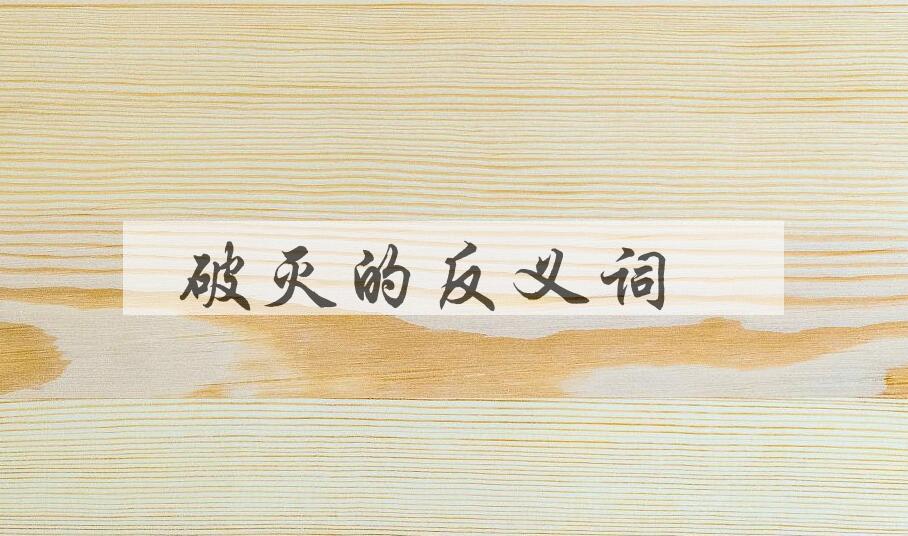 破灭的反义词